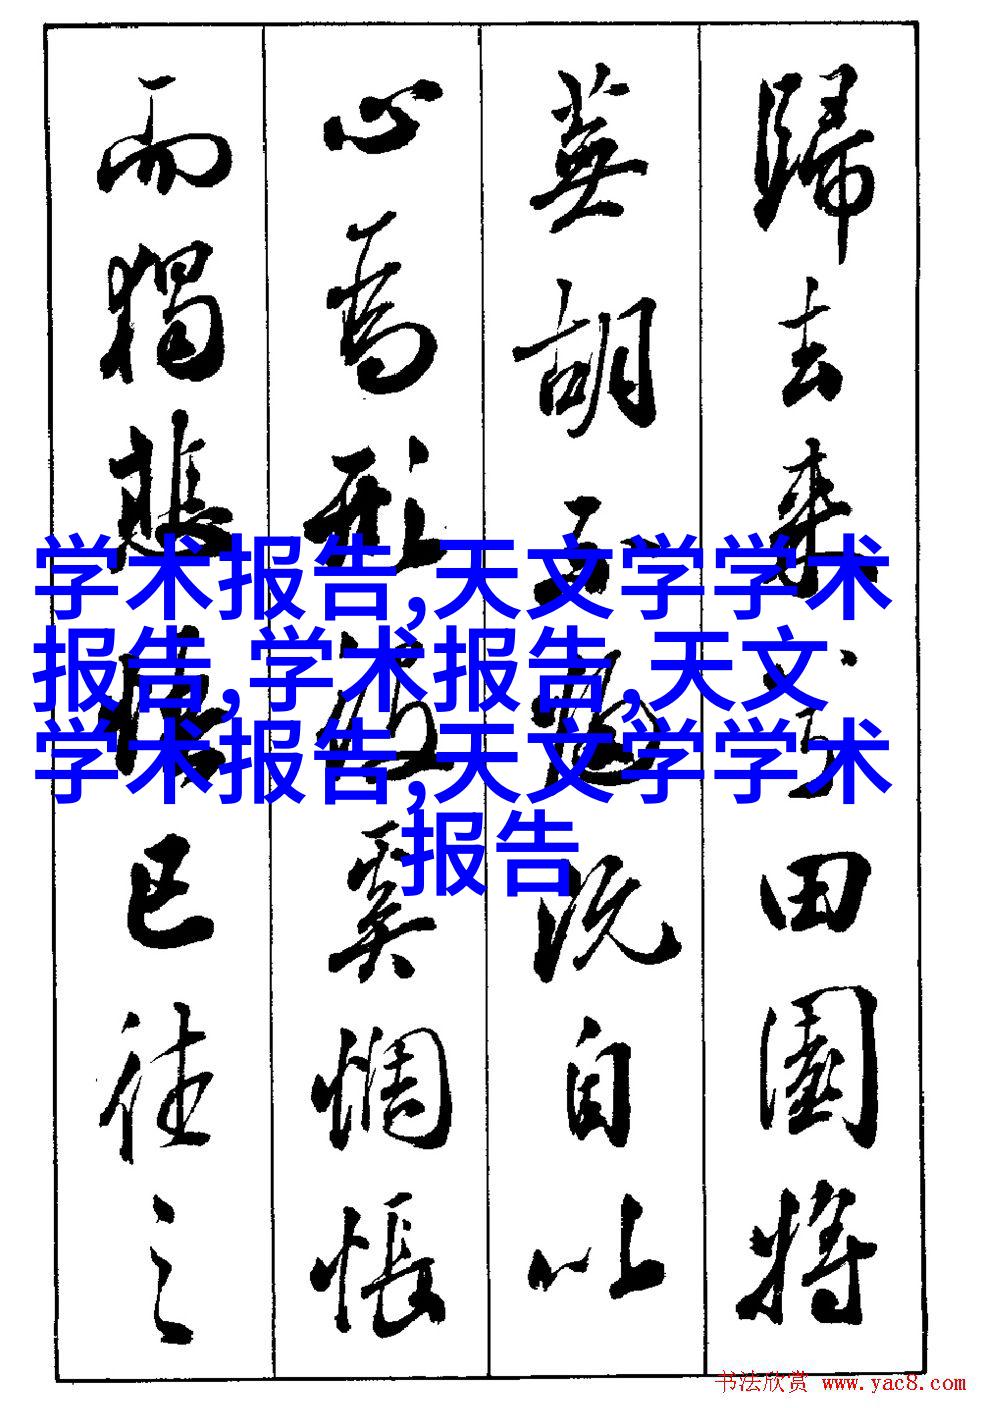 歸去来兮田園将
蕪胡不歸既自以
心為形役奚惆悵
而獨悲悟已往之
学术报告,天文学学术
报告,学术报告,天文
学术报告,天文学学术
报告
书法欣赏 www.yac8.com